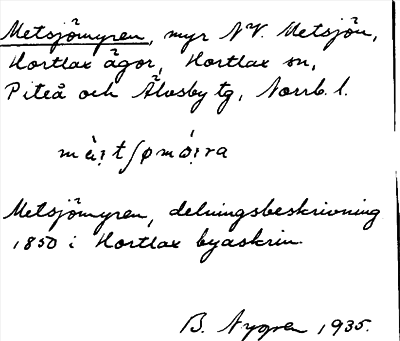 Metsjömyren, myr NV. Metsjön,
Hortlax ägor, Hortlax sn,
Piteå och Älvsby tg, Norrb. l.
Metsjömyren, delningsbeskrivning
1850 i Hortlax byaskrin.
B. Nygren 1935.